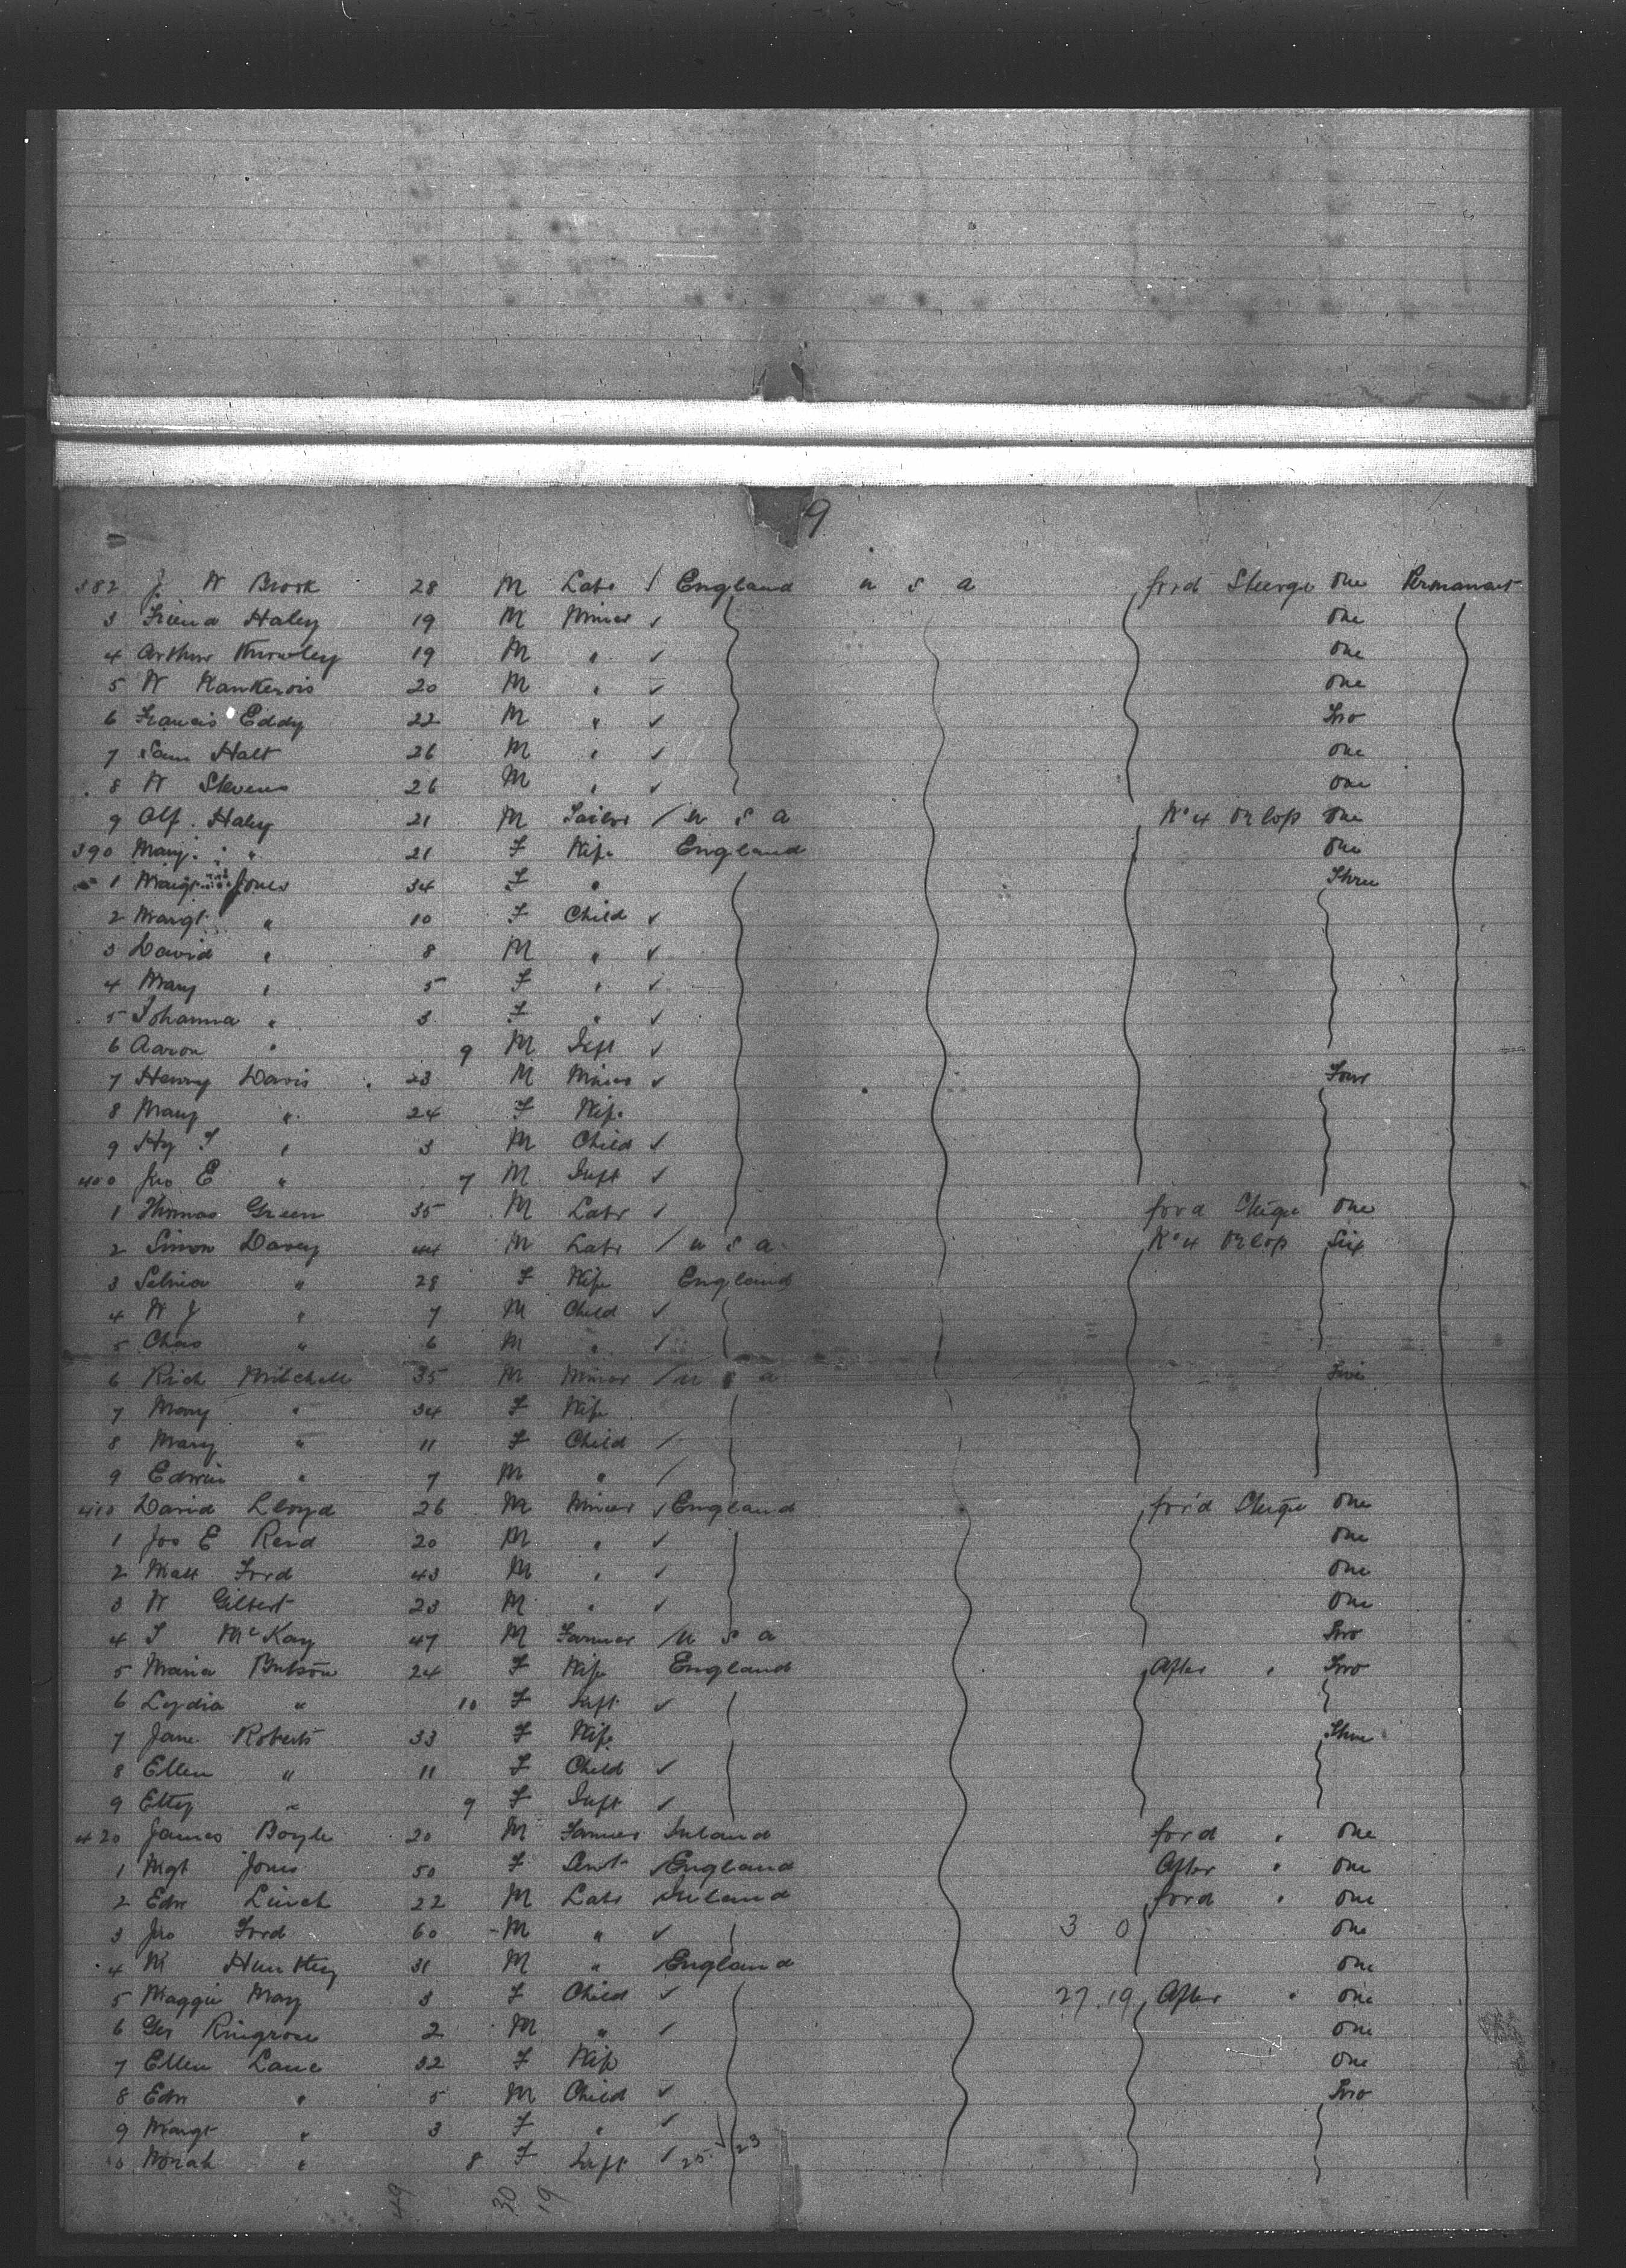 9
382 J W Brook 28 M Labr / England U S A ford Steerge One Permanent
3 Friend Haley 19 M Miner ✓ One
4 Arthur 19 M " ✓ One
5 W 20 M " ✓ One
6 Francis Eddy 22 M " ✓ Two
7 Sam Halt 26 M " ✓ One
8 W Stevens 26 M " ✓ One
9 Alf. Haley 21 M / U S A No 4 Orlop One
390 Mary " 21 F Wife England One
1 Margt Jones 34 F " Three
2 Margt " 10 F Child ✓
3 David " 8 M " ✓
4 Mary " 5 F " ✓
5 Johanna " 3 F " ✓
6 Aaron " 9 M Inft ✓
7 Henry Davis 23 M Miner ✓ Four
8 Mary " 24 F Wife
9 Hy T " 3 M Child ✓
400 Jno E " 7 M Inft ✓
1 Thomas Green 35 M Labr ✓ ford Steige One
2 Simon Davey 44 M Labr / U S A No 4 Orlop Six
3 Selina " 28 F Wife England
4 W J " 7 M Child ✓
5 Chas " 6 M " ✓
6 Rich Mitchell 35 M Miner / U S A Five
7 Mary " 34 F Wife
8 Mary " 11 F Child /
9 Edwin " 7 M " /
410 David Lloyd 26 M Miner ✓ England for'd Steige One
1 Jos E Read 20 M " ✓ One
2 Matt Ford 43 M " ✓ One
3 W Gilbert 23 M " ✓ One
4 McKay 47 M Farmer / U S A Two
5 Maria 24 F Wife England After " Two
6 Lydia " 10 F Inft ✓
7 Jane Roberts 33 F Wife Three
8 Ellen " 11 F Child ✓
9 Etty " 9 F Inft ✓
420 James Boyle 20 M Farmer Ireland ford " One
1 Mgt Jones 50 F Servt England After " One
2 Edw Linch 22 M Labr Ireland ford " One
3 Jno Ford 60 M " ✓ 3 0 One
4 Huntley 31 M " England One
5 Maggie May 3 F Child ✓ 27.19 After " One
6 Geo Ringrose 2 M " ✓ One
7 Ellen Lane 32 F Wife One
8 Edw " 5 M Child ✓ Two
9 Margt " 3 F " ✓
0 Norah " 8 F Inft ✓ 25 ✓ 23
49 30 19